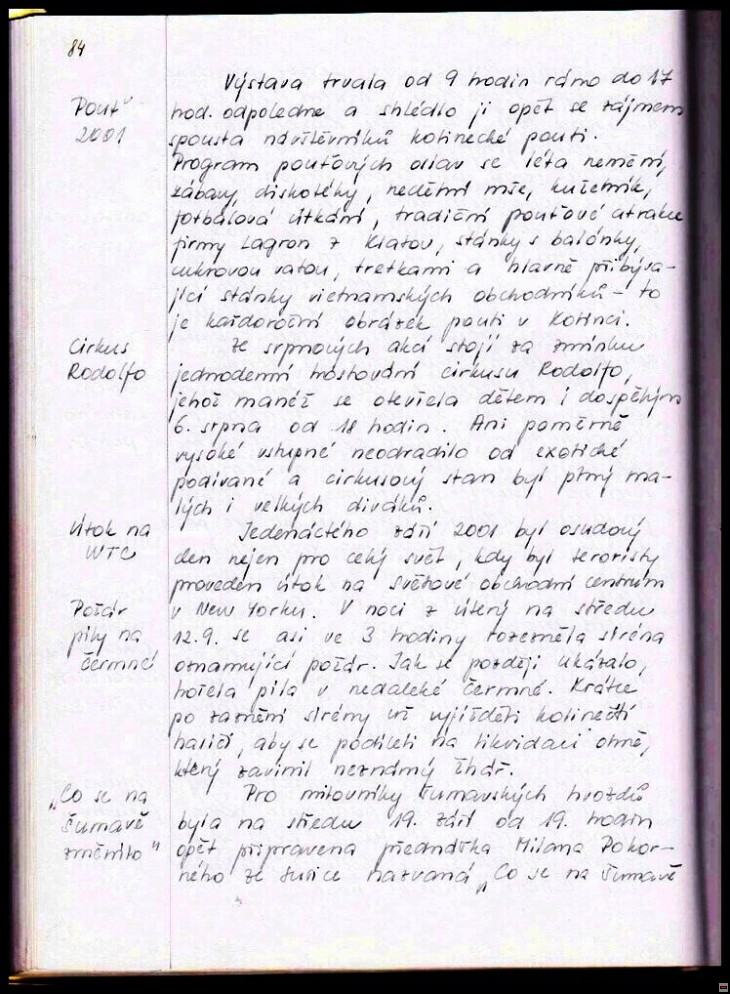 84
Výstava trvala od 9 hodin ráno do 17
Pouť
2001
hod. odpoledne a shlédlo ji opět se zájmem
spousta návštěvníků kolinecké pouti.
Program pouťových oslav se léta nemění,
zábavy, diskotéky, nedělní mše, kuželník,
fotbalová utkání, tradiční pouťové atrakce
firmy Lagron z Klatov, stánky s balónky,
cukrovou vatou, tretkami a hlavně přibýva-
jící stánky vietnamských obchodníků – to
je každoroční obrázek pouti v Kolinci.
Cirkus
Rodolfo
Ze srpnových akcí stojí za zmínku
jednodenní hostování cirkusu Rodolfo,
jehož manéž se otevřela dětem i dospělým
6. srpna od 18 hodin. Ani poměrně
vysoké vstupné neodradilo od exotické
podívané a cirkusový stan byl plný ma-
lých i velkých diváků.
Útok na
WTC
Jedenáctého září 2001 byl osudový
den nejen pro celý svět, kdy byl teroristy
proveden útok na Světové obchodní centrum
v New Yorku. V noci z úterý na středu
Požár
pily na
Čermné
12.9. se asi ve 3 hodiny rozezněla siréna
oznamující požár. Jak se později ukázalo,
hořela pila v nedaleké Čermné. Krátce
po zaznění sirény už vyjížděli kolinečtí
hasiči, aby se podíleli na likvidaci ohně,
který zavinil neznámý žhář.
„Co se na
Šumavě
změnilo"
Pro milovníky šumavských hvozdů
byla na středu 19. září od 19. hodin
opět připravena přednáška Milana Pokor-
ného ze Sušice nazvaná „Co se na Šumavě